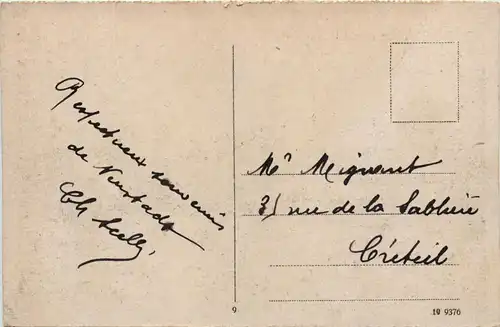 Respectueux souvenirs
de Neustadt
Ch
Mr Mignant
31 rue de la Sablière
Créteil
9
19 9376